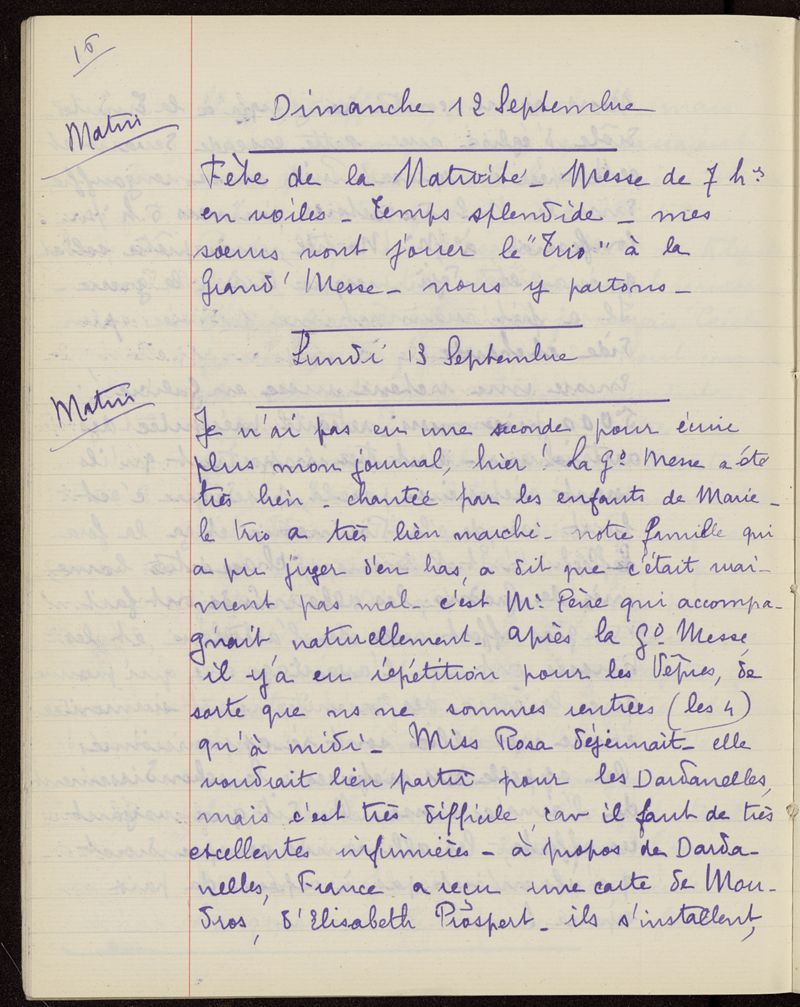 16
Dimanche 12 Septembre
Matin
Fête de la Nativité - Messe de 7 h.s
en voiles - temps splendide - mes
sœurs vont jouer le "Trio" à la
Grand' Messe - nous y partons -
Lundi 13 Septembre
Matin
Je n'ai pas eu une seconde pour écrire
plus mon journal, hier ! La Gd. Messe a été
très bien - chantée par les enfants de Marie -
le trio a très bien marché - notre famille qui
a pu juger d'en bas, a dit que c'était vrai-
ment pas mal - c'est Mr. Père qui accompa-
gnait naturellement - après la Gd. Messe,
il y'a eu répétition pour les Vêpres, de
sorte que ns ne sommes rentrées (les 4)
qu'à midi - Miss Rosa déjeunait - elle
voudrait bien partir pour les Dardanelles,
mais c'est très difficile, car il faut de très
excellentes infirmières - à propos de Darda-
nelles, France a reçu une carte de Mou-
dros, d'Elisabeth Prospert - ils s'installent,